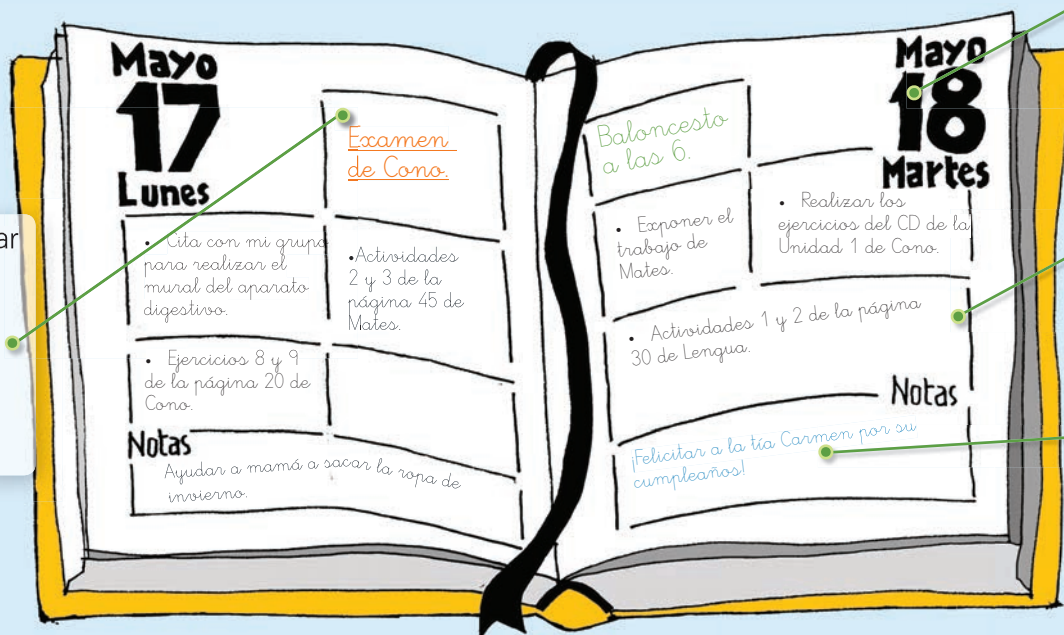 Mayo
17
Lunes
Examen
de Cono.
• Cita con mi grupo
para realizar el
mural del aparato
digestivo.
•Actividades
2 y 3 de la
página 45 de
Mates.
• Ejercicios 8 y 9
de la página 20 de
Cono.
Notas
Ayudar a mamá a sacar la ropa de
invierno.
Mayo
18
Martes
Baloncesto
a las 6.
• Exponer el
trabajo de
Mates.
• Realizar los
ejercicios del CD de la
Unidad 1 de Cono.
• Actividades 1 y 2 de la página
30 de Lengua.
Notas
¡Felicitar a la tía Carmen por su
cumpleaños!